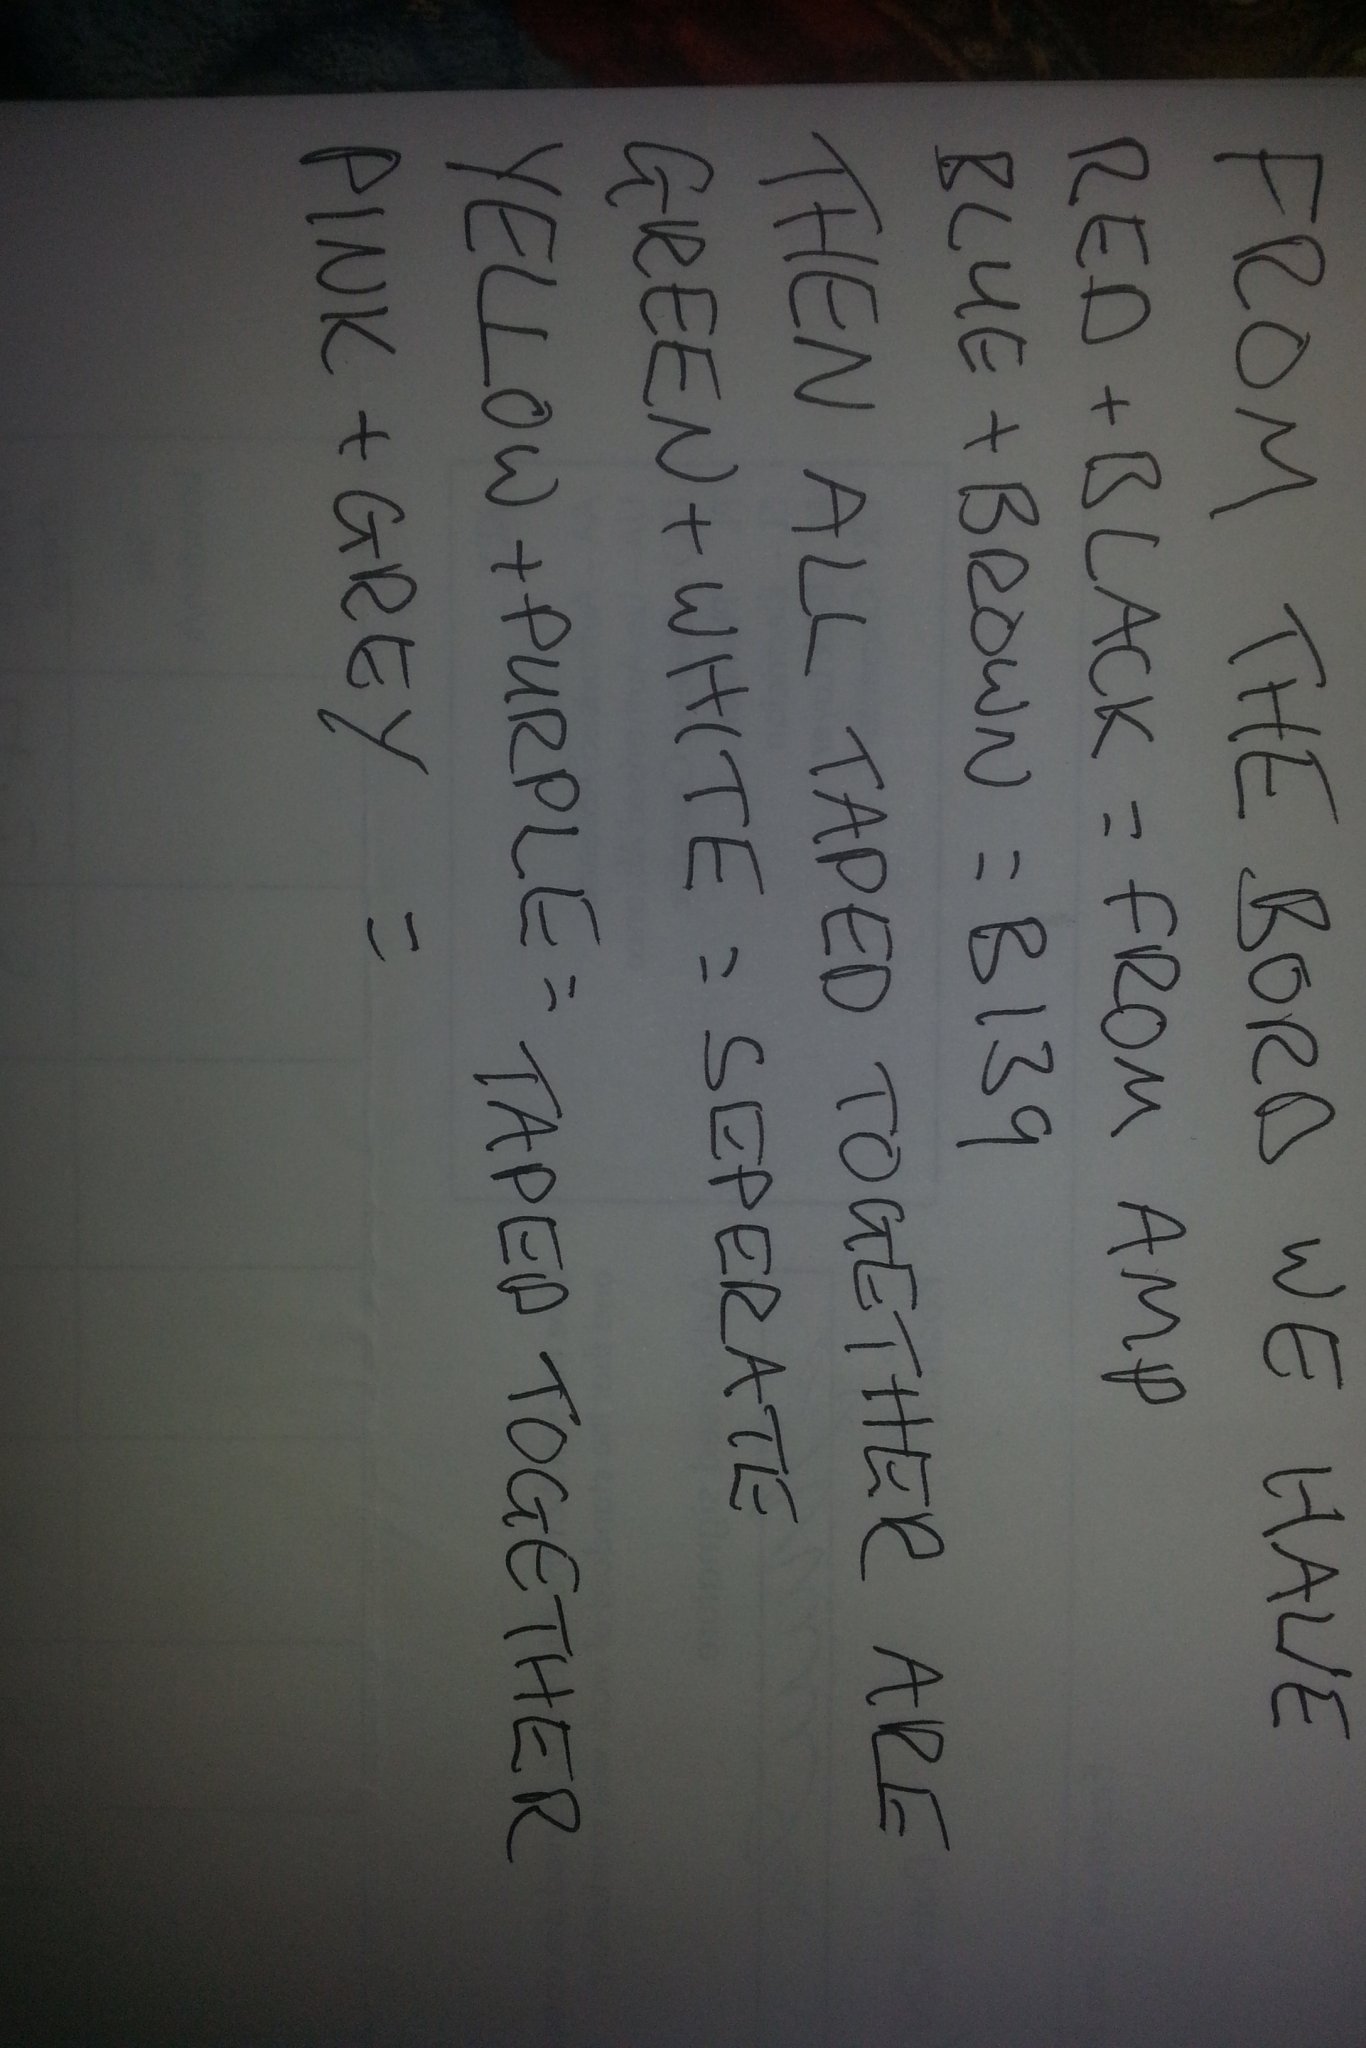 FROM THE BORD WE HAVE
RED + BLACK = FROM AMP
BLUE + BROWN = B139
THEN ALL TAPED TOGETHER ARE
GREEN + WHITE = SEPERATE
YELLOW + PURPLE = TAPED TOGETHER
PINK + GREY =